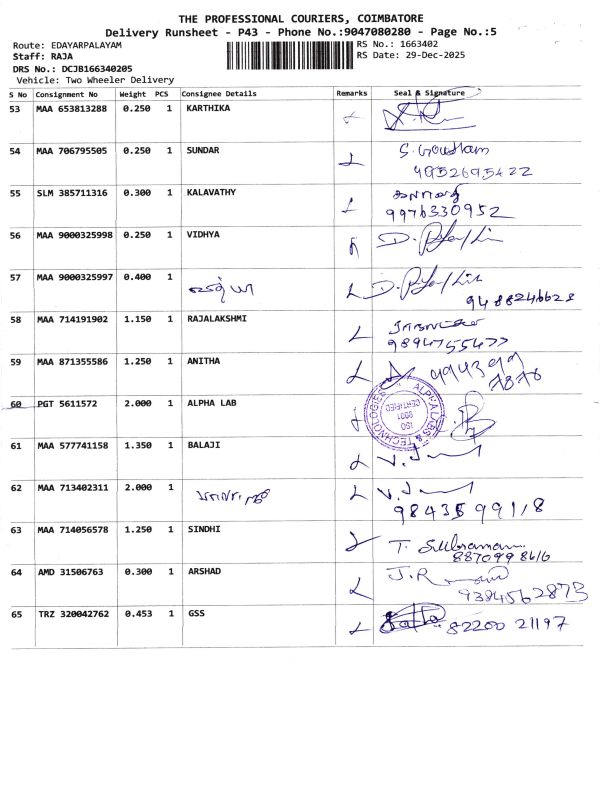 THE PROFESSIONAL COURIERS, COIMBATORE
Delivery Runsheet - P43 - Phone No.:9047080280 - Page No.:5
Route: EDAYARPALAYAM RS No.: 1663402
Staff: RAJA RS Date: 29-Dec-2025
DRS No.: DCJB166340205
Vehicle: Two Wheeler Delivery
S No Consignment No Weight PCS Consignee Details Remarks Seal & Signature
53 MAA 653813288 0.250 1 KARTHIKA
54 MAA 706795505 0.250 1 SUNDAR S. Goutham
4952695422
55 SLM 385711316 0.300 1 KALAVATHY
9976330952
56 MAA 9000325998 0.250 1 VIDHYA
57 MAA 9000325997 0.400 1
9488246628
58 MAA 714191902 1.150 1 RAJALAKSHMI
9894755477
59 MAA 871355586 1.250 1 ANITHA
7878
60 PGT 5611572 2.000 1 ALPHA LAB
ALPHA LABS & TECHNOLOGIES
ISO
9001
CERTIFIED
61 MAA 577741158 1.350 1 BALAJI
62 MAA 713402311 2.000 1
63 MAA 714056578 1.250 1 SINDHI T. Subramani
8870998616
64 AMD 31506763 0.300 1 ARSHAD
9384562873
65 TRZ 320042762 0.453 1 GSS 82200 21197